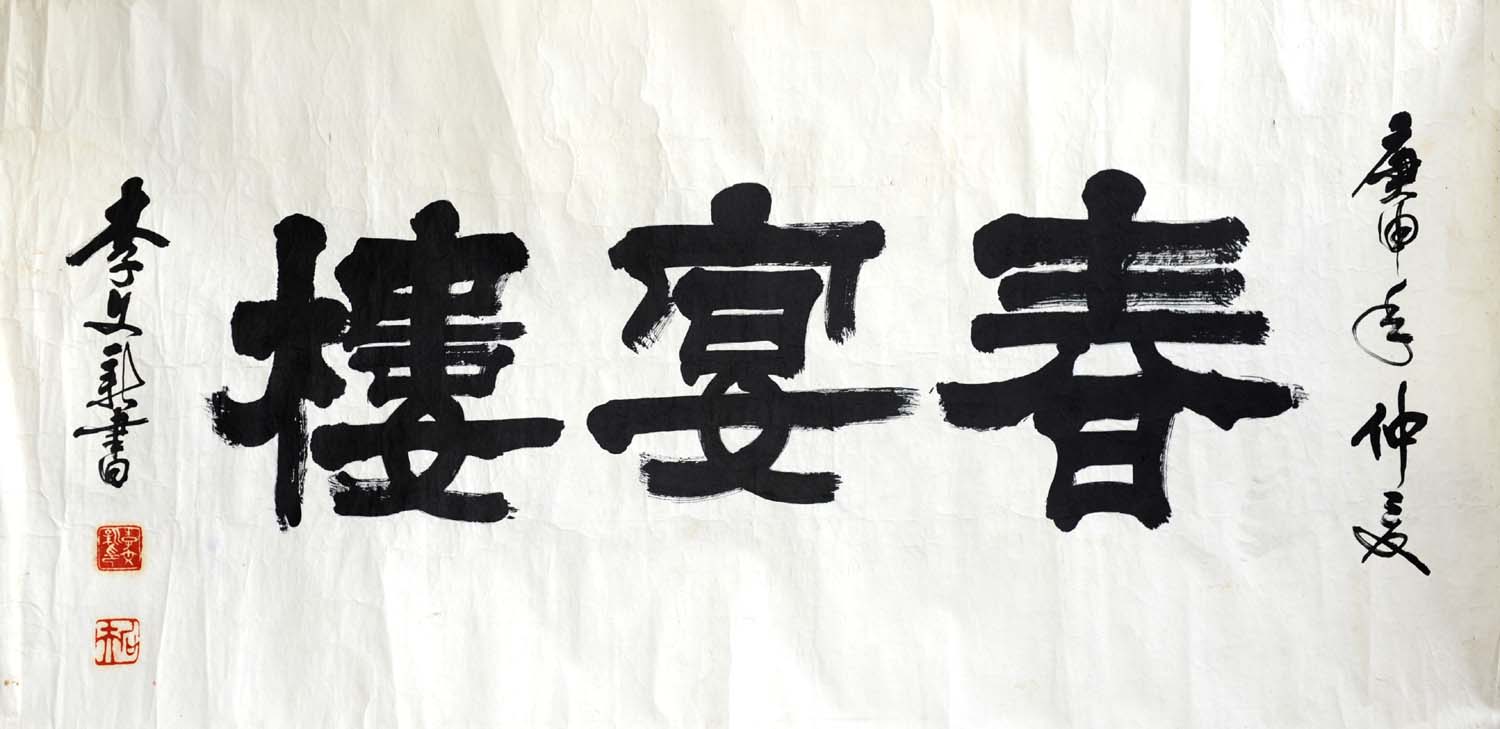 庚申年仲夏
春宴樓
李文新書